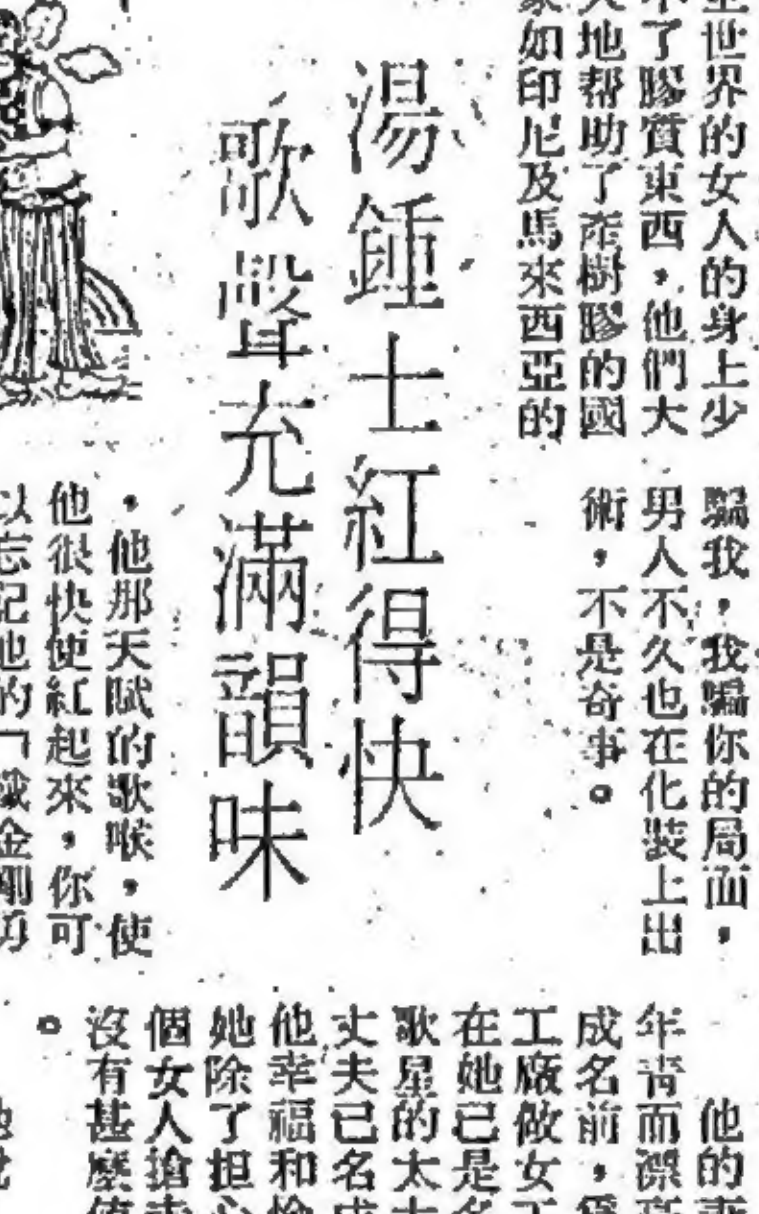 世界的女人的身上少
不了膠質東西，他們大
大地帮助了產樹膠的國
家如印尼及馬來西亞的
騙我，我騙你的局面，
男人不久也在化裝上出
術，不是奇事。
湯鍾士紅得快
歌聲充滿韻味
，他那天賦的歌喉，使
他很快便紅起來，你可
以忘記他的「鐵金剛勇
他的妻
年青而漂亮
成名前，
工廠做女工
在她已是名
歌星的太
丈夫已名成
他幸福和愉
她除了担心
個女人搶
沒有甚麼
。